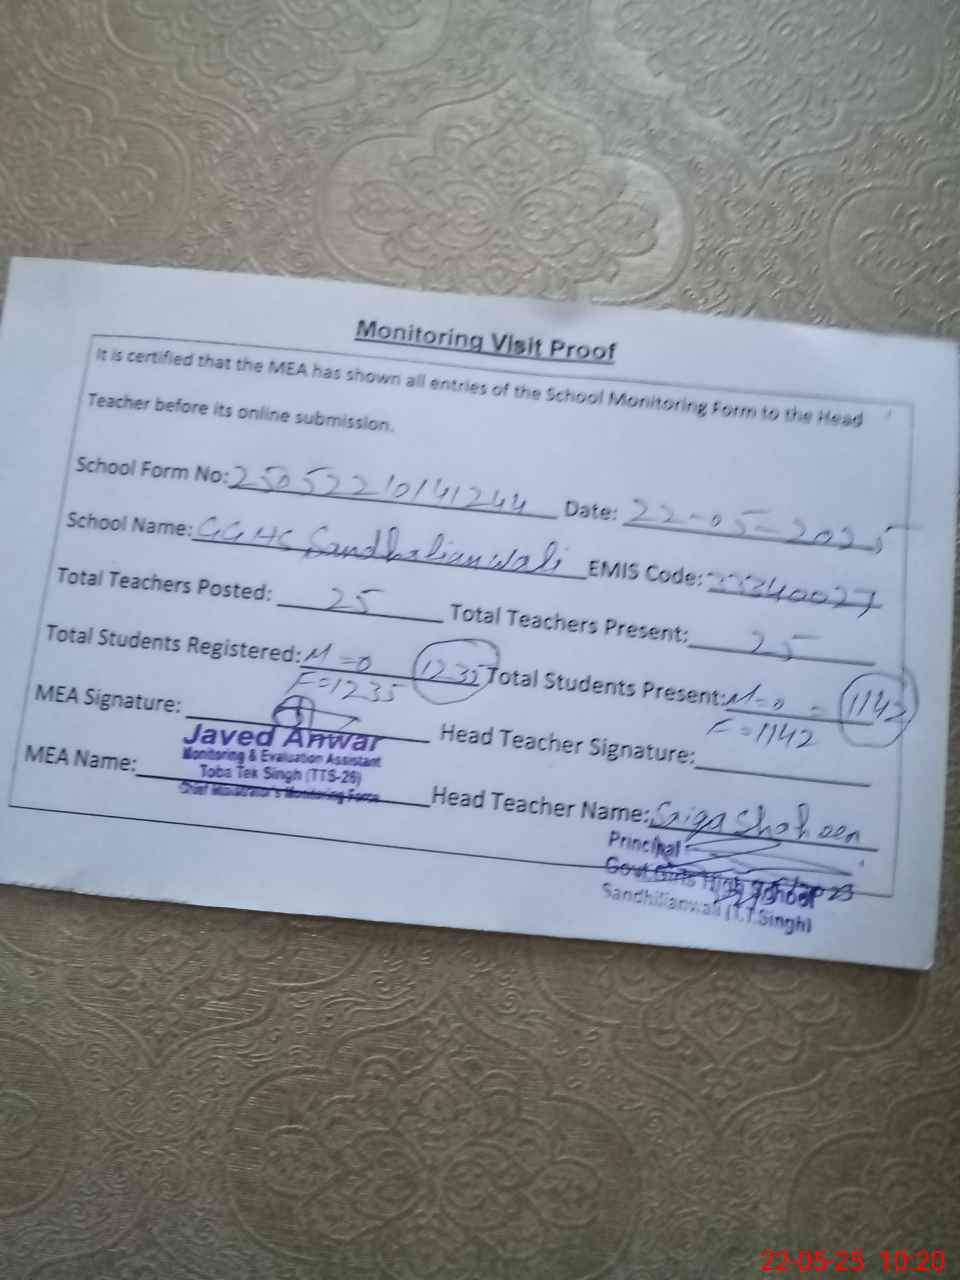 Monitoring Visit Proof
It is certified that the MEA has shown all entries of the School Monitoring Form to the Head
Teacher before its online submission.
School Form No: 25052210141244 Date: 22-05-2025
School Name: GGHS Sandhalianwali EMIS Code: 33340027
Total Teachers Posted: 25 Total Teachers Present: 25
Total Students Registered: M=0 1235 Total Students Present: M=0 = 1142
F=1235 F=1142
MEA Signature: Head Teacher Signature:
Javed Anwar
Monitoring & Evaluation Assistant
Toba Tek Singh (TTS-26)
Chief Minister's Monitoring Force
MEA Name: Head Teacher Name: Shaheen
Principal
Govt Girls High School
Sandhilianwali (T.T.Singh)
22-05-25 10:20